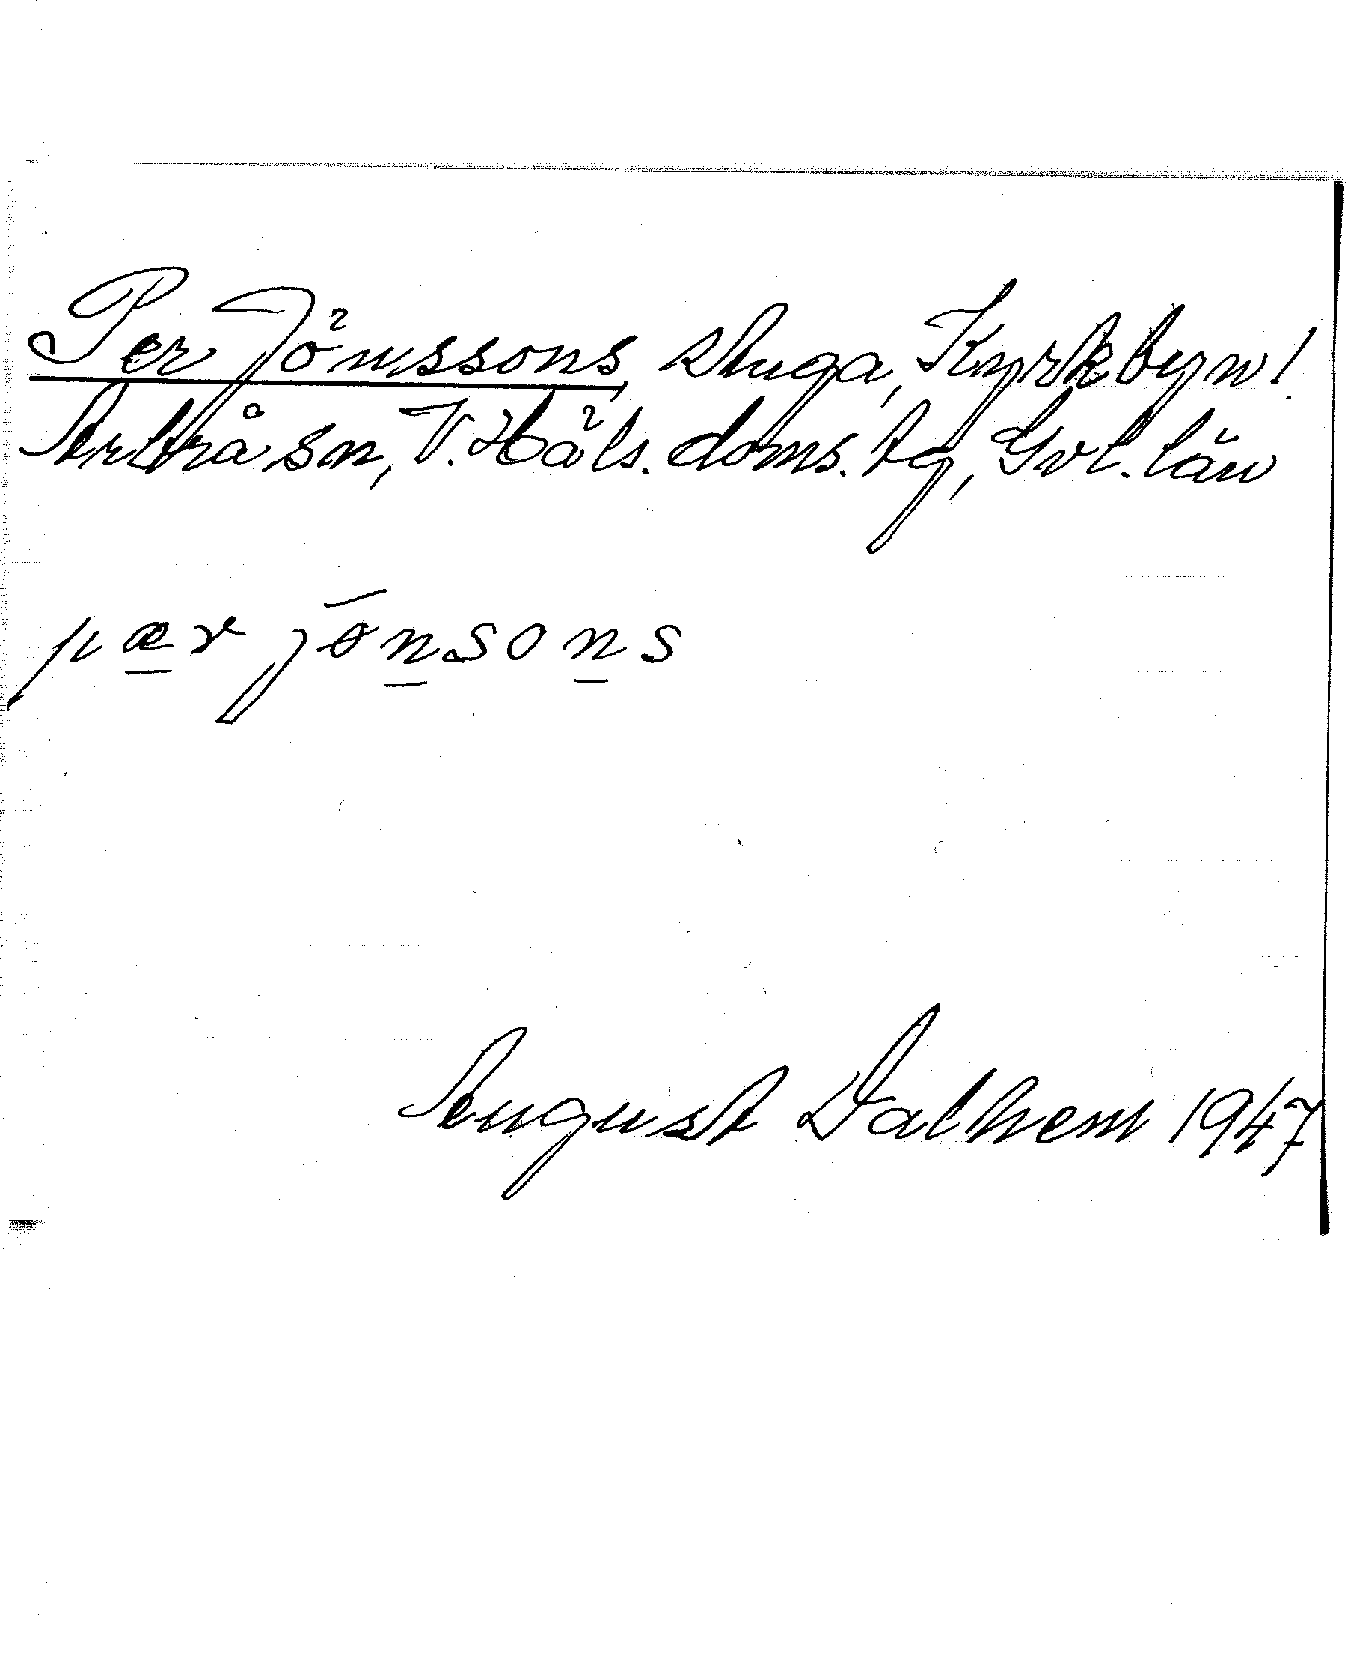 Per Jönssons stuga, Kyrkbyn!
Arbrå sn, V. Häls. doms. tg, Gvl. län
pær jönsons
August Dalhem 1947